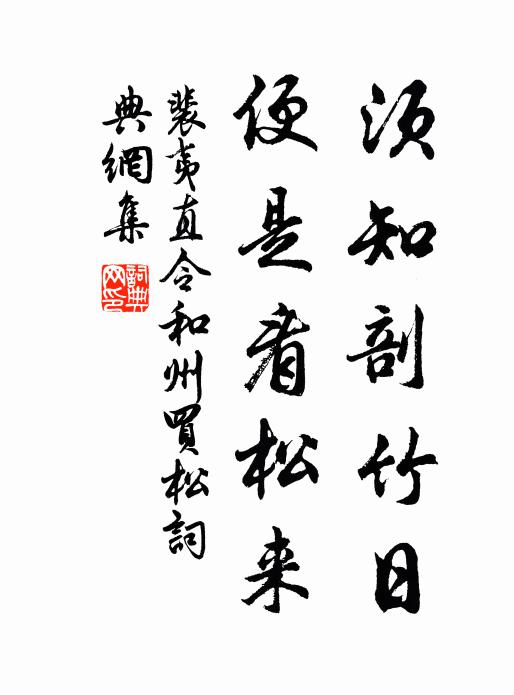 須知剖竹日
便是看松来
裴夷直令和州買松詞
典網集
詞典
网印